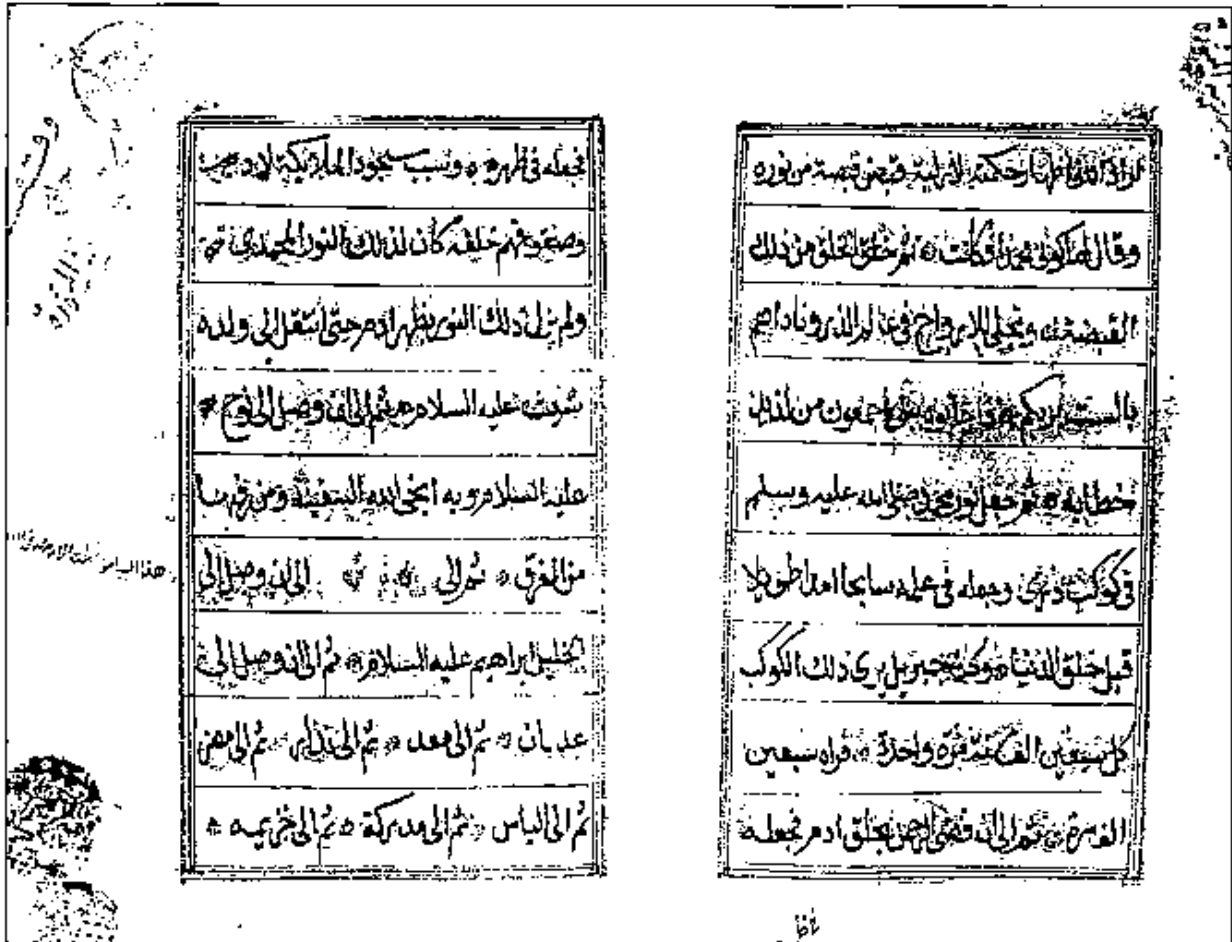 اراد الله اظهار حكمته الازلية قبض قبضة من نوره
وقال لها كوني محمدا فكانت ثم خلق الخلق من تلك
القبضة وتجلى للارواح في عالم الذر وناداهم
بالست بربكم اجمعون من لذيذ
خطابه ثم جعل نور محمد صلى الله عليه وسلم
في كوكب دري وجعله في علمه سابحا امدا طويلا
قبل خلق الدنيا وكان جبريل يرى ذلك الكوكب
كل سبعين الف سنة مرة واحدة فراه سبعين
الف مرة ثم الى انه الرحمن بخلق ادم فجعله
فجعله في ظهره وسبب سجود الملائكة لادم
خلقه كان لذلك النور المحمدي
ولم يزل ذلك النور بظهر ادم حتى انتقل الى ولده
شيث عليه السلام ثم الى ان وصل الى نوح
عليه السلام وبه انجى الله السفينة ومن فيها
من الغرق ثم الى الى ان وصل الى
الخليل ابراهيم عليه السلام ثم الى ان وصل الى
عدنان ثم الى معد ثم الى نزار ثم الى مضر
ثم الى الياس ثم الى مدركة ثم الى خزيمه